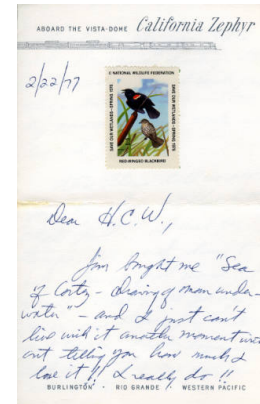 ABOARD THE VISTA-DOME California Zephyr
2/22/77
© NATIONAL WILDLIFE FEDERATION
SAVE OUR WETLANDS-SPRING 1976
SAVE OUR WETLANDS-SPRING 1976
RED-WINGED BLACKBIRD
Dear H.C.W.,
Jim bought me "Sea
of Cortez - Drawing of man under-
water" - and I just can't
live with it another moment with-
out telling you how much I
love it!! I really do!!
BURLINGTON · RIO GRANDE · WESTERN PACIFIC